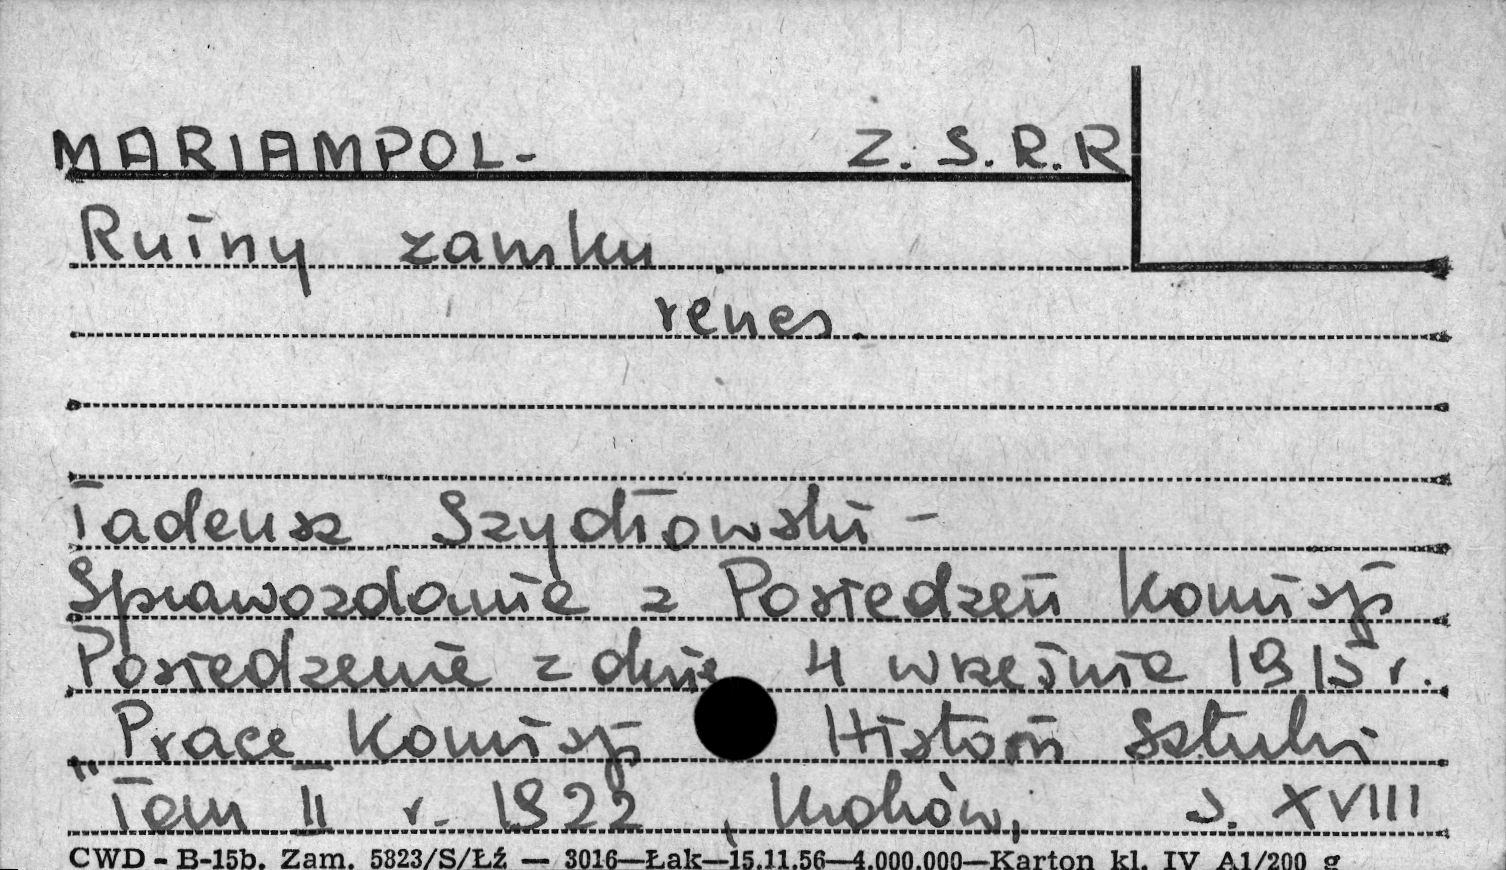 MARIAMPOL- Z.S.R.R
Ruiny zamku
renes.
Tadeusz Szydłowski -
Sprawozdanie z Posiedzeń Komisji
Posiedzenie z dnia 4 września 1915 r.
"Prace Komisji Historii Sztuki
Tom II r. 1922, Kraków, s. XVIII
CWD - B-15b. Zam. 5823/S/Łź — 3016—Łak—15.11.56—4.000.000—Karton kl. IV A1/200 g